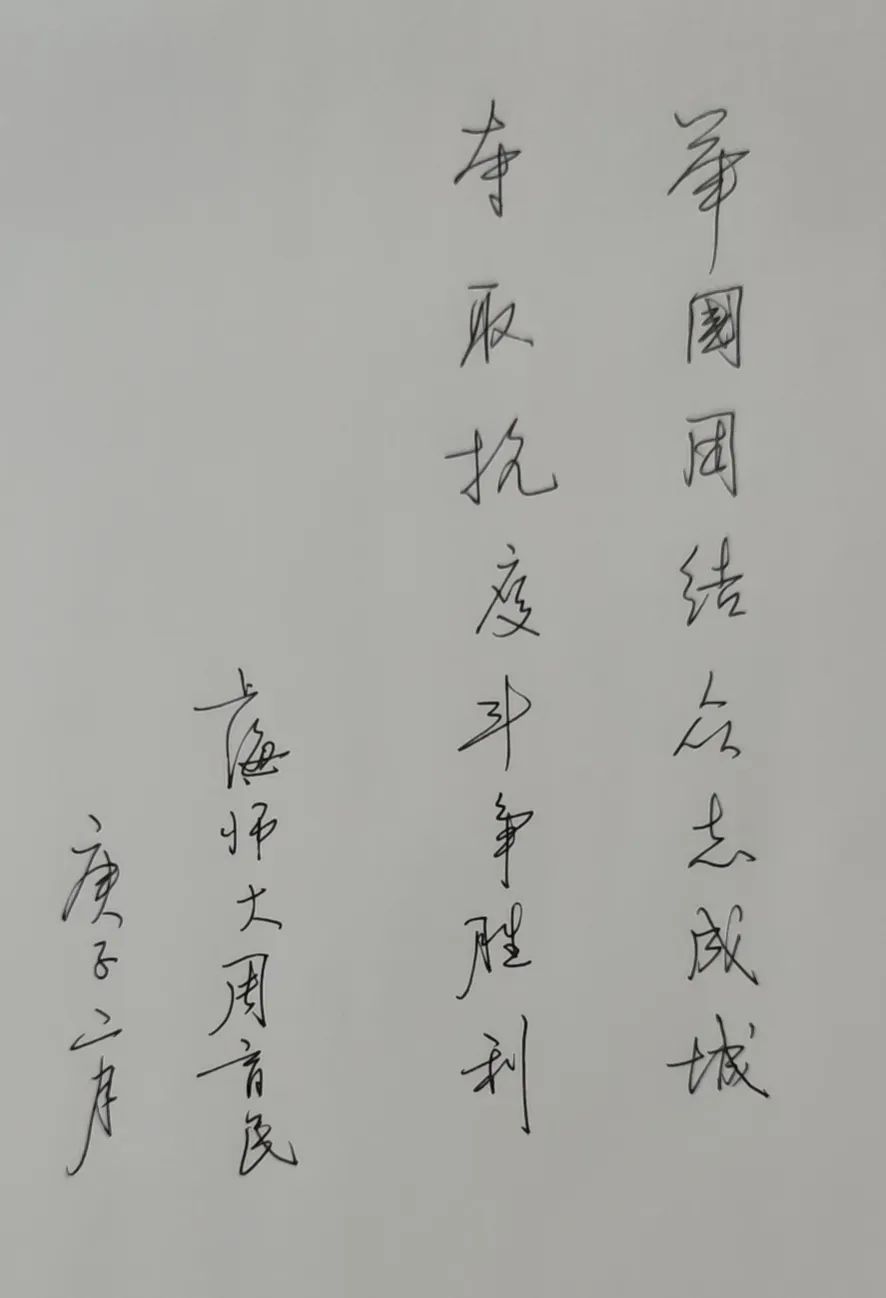 举國团结众志成城
夺取抗疫斗争胜利
上海师大周育民
庚子二月